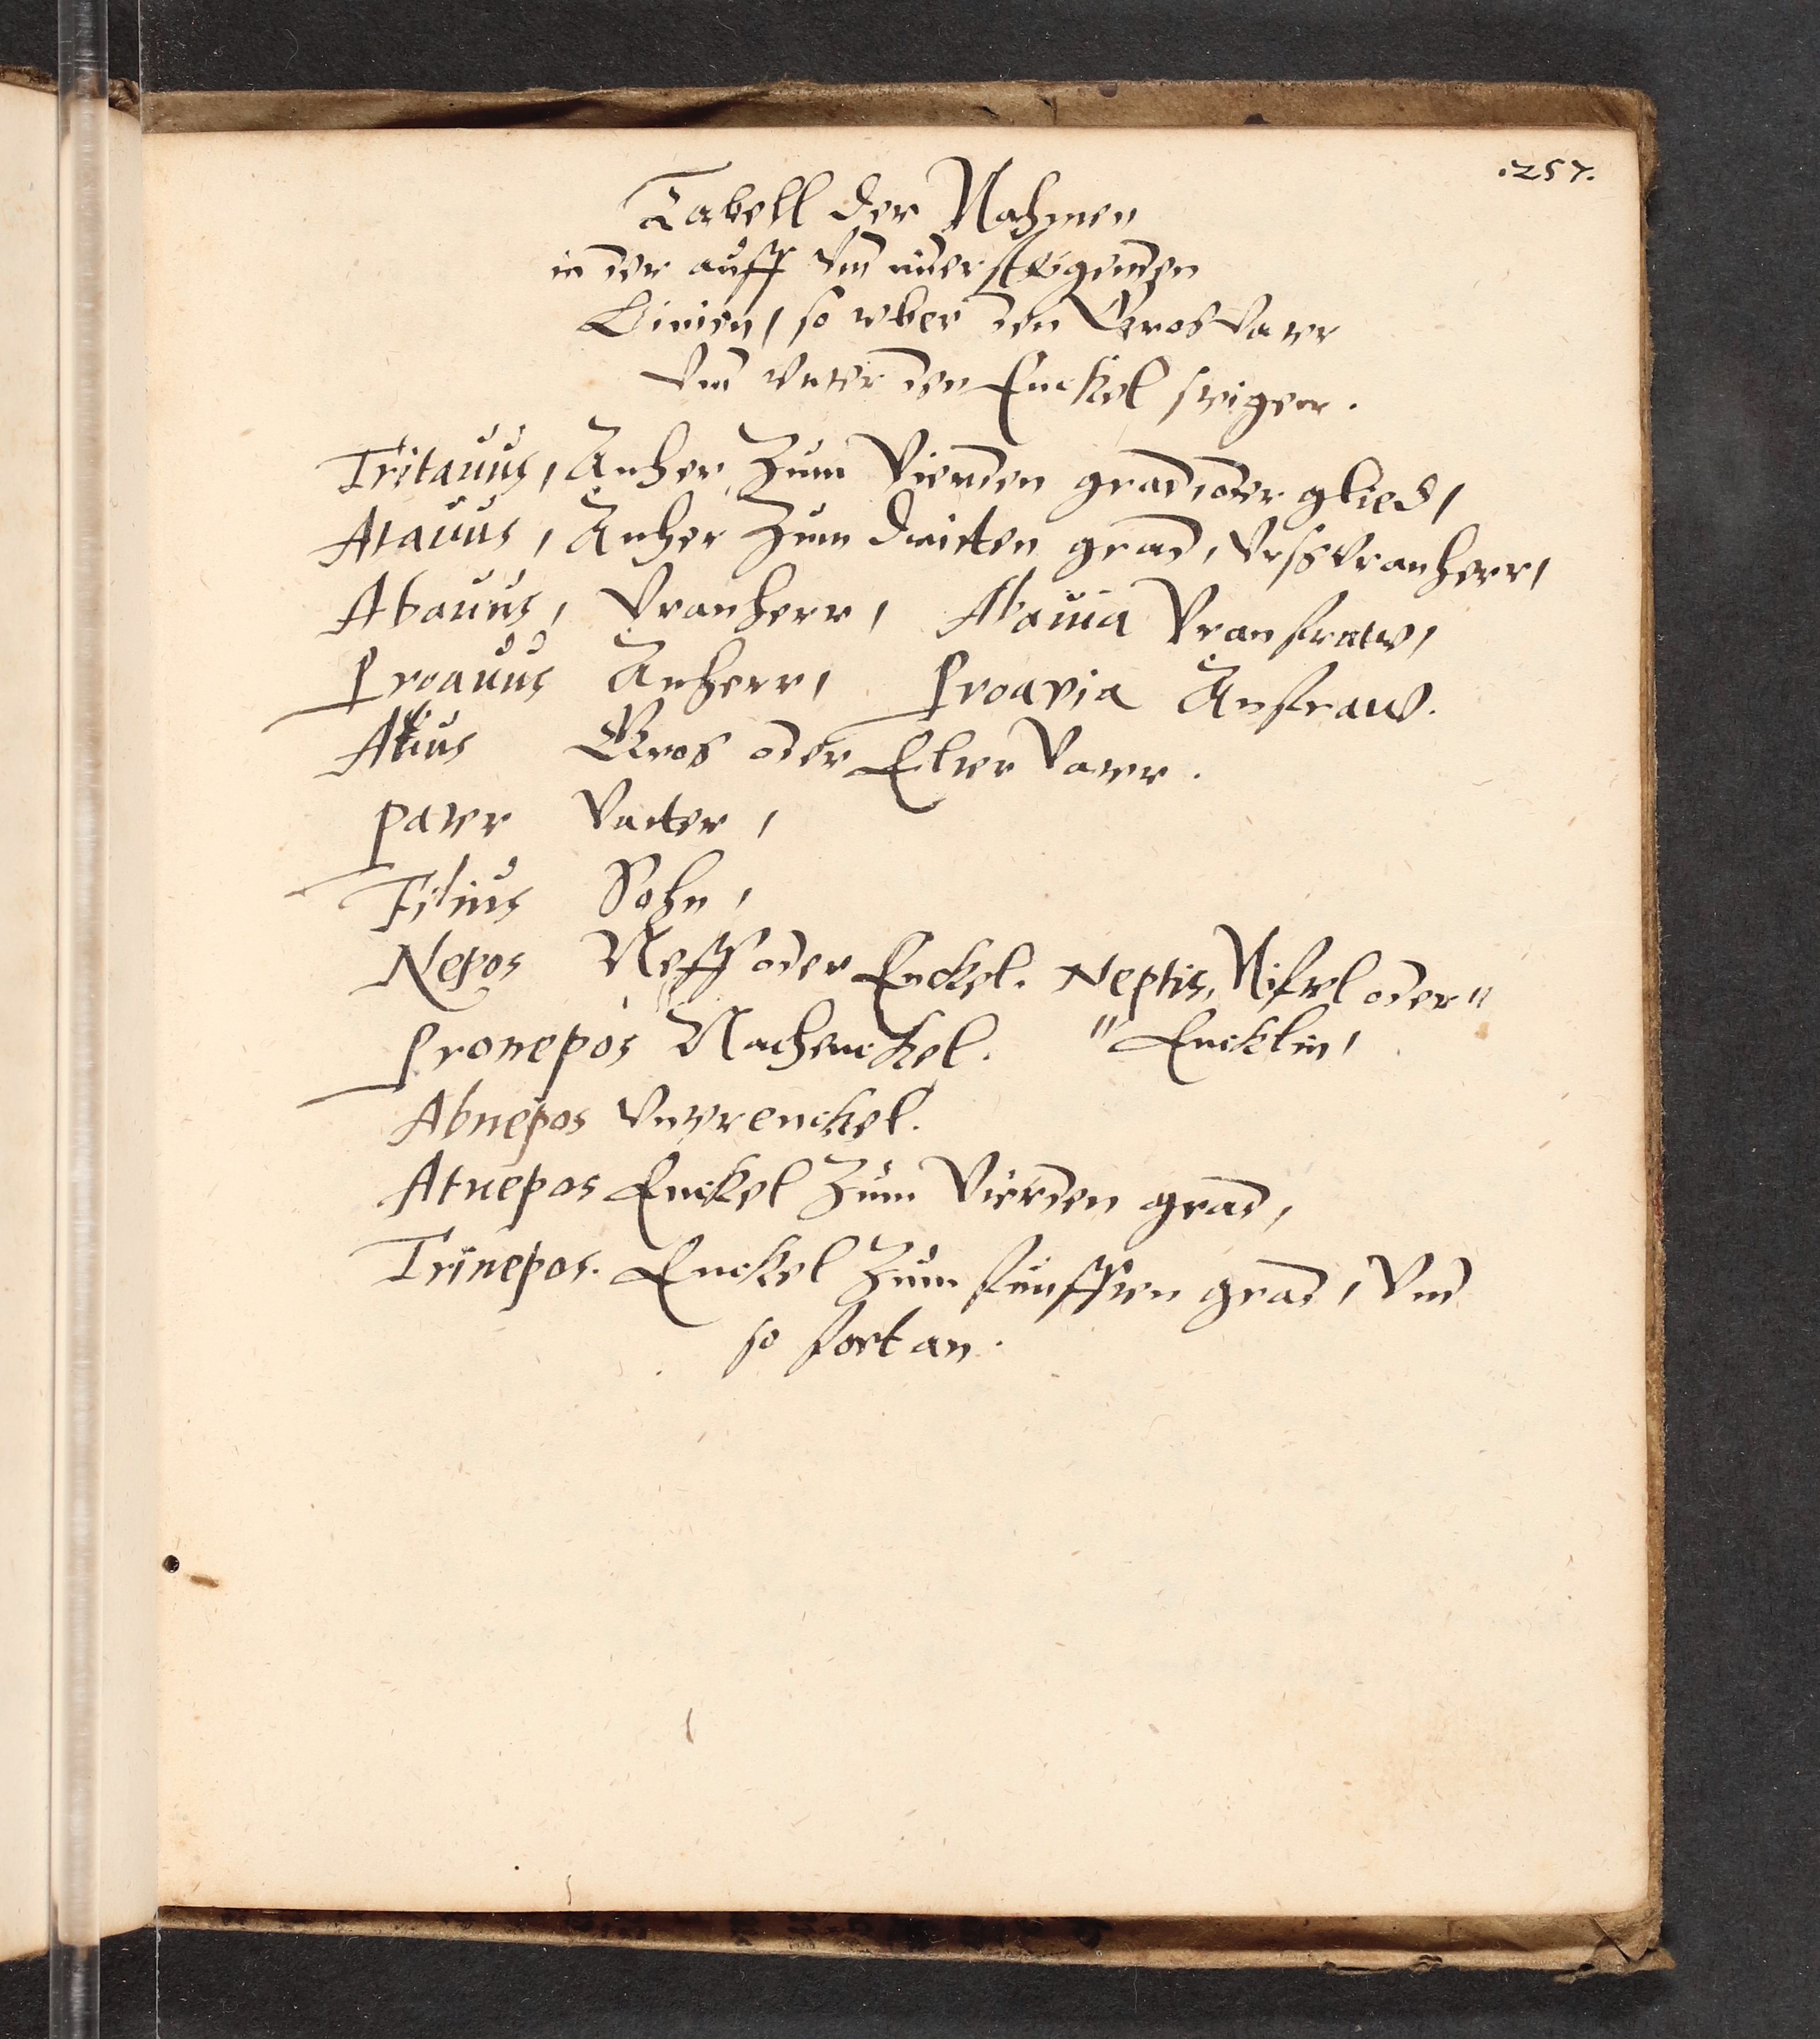 .257.
Tabell der Nahmen
in der auff vnd nider steigenden
Linien, so vber den Gros Vater
vnd vnter den Enckel steigen.
Tritauus, Anher zum Vierden grad oder glied,
Atauus, Anher zum dritten grad, Vranherr,
Abauus, Vranherr, Abauia Vranfraw,
Proauus Anherr, Proavia Anfraw.
Auus Gros oder Elter Vater.
Pater Vatter,
Filius Sohn,
Nepos Neff oder Enckel. Neptis, Niftel oder"
Pronepos Nachenckel. "Encklin,
Abnepos Vnterenckel.
Atnepos Enckel zum Vierden grad,
Trinepos. Enckel zum fünfften grad, Vnd
so fort an.